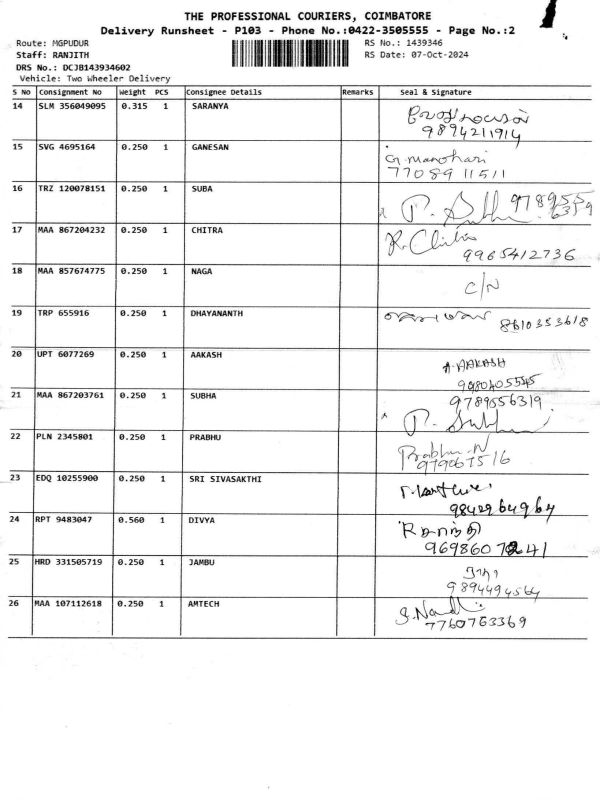 THE PROFESSIONAL COURIERS, COIMBATORE
Delivery Runsheet - P103 - Phone No.:0422-3505555 - Page No.:2
Route: MGPUDUR RS No.: 1439346
Staff: RANJITH RS Date: 07-Oct-2024
DRS No.: DCJB143934602
Vehicle: Two Wheeler Delivery
S No Consignment No Weight PCS Consignee Details Remarks Seal & Signature
14 SLM 356049095 0.315 1 SARANYA
9894211914
15 SVG 4695164 0.250 1 GANESAN G. Manohari
77089 11511
16 TRZ 120078151 0.250 1 SUBA P. Subha 978955
6319
17 MAA 867204232 0.250 1 CHITRA R. Chitra
9965412736
18 MAA 857674775 0.250 1 NAGA C/N
19 TRP 655916 0.250 1 DHAYANANTH 8610353618
20 UPT 6077269 0.250 1 AAKASH A. AAKASH
21 MAA 867203761 0.250 1 SUBHA 9789556319
P. Subha
22 PLN 2345801 0.250 1 PRABHU Prabhu. N
23 EDQ 10255900 0.250 1 SRI SIVASAKTHI
9842964964
24 RPT 9483047 0.560 1 DIVYA
25 HRD 331505719 0.250 1 JAMBU
9894494564
26 MAA 107112618 0.250 1 AMTECH S. Nandhi
7760763369